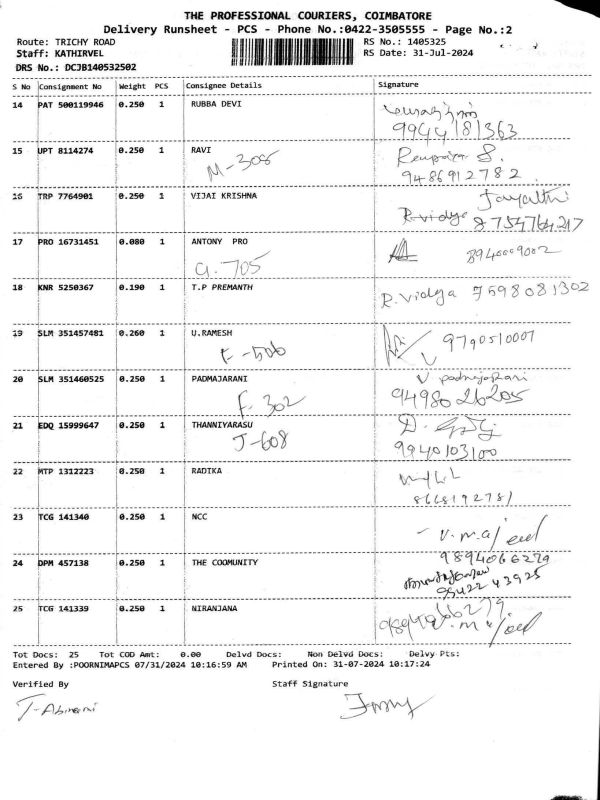 THE PROFESSIONAL COURIERS, COIMBATORE
Delivery Runsheet - PCS - Phone No.:0422-3505555 - Page No.:2
Route: TRICHY ROAD RS No.: 1405325
Staff: KATHIRVEL RS Date: 31-Jul-2024
DRS No.: DCJB140532502
S No Consignment No Weight PCS Consignee Details Signature
14 PAT 500119946 0.250 1 RUBBA DEVI
9944181363
15 UPT 8114274 0.250 1 RAVI
M-305
9486912782
16 TRP 7764901 0.250 1 VIJAI KRISHNA Jayalthi
R.vidya 8754764217
17 PRO 16731451 0.080 1 ANTONY PRO 8940009002
G.705
18 KNR 5250367 0.190 1 T.P PREMANTH R.vidya 7598081302
19 SLM 351457481 0.260 1 U.RAMESH 9790510007
F-506
20 SLM 351460525 0.250 1 PADMAJARANI V padmajarani
F-302 9498026205
21 EDQ 15999647 0.250 1 THANNIYARASU
J-608 9940103100
22 MTP 1312223 0.250 1 RADIKA
8668192781
23 TCG 141340 0.250 1 NCC V.majeed
9894066279
24 DPM 457138 0.250 1 THE COOMUNITY
95422 43925
25 TCG 141339 0.250 1 NIRANJANA
Tot Docs: 25 Tot COD Amt: 0.00 Delvd Docs: Non Delvd Docs: Delvy Pts:
Entered By :POORNIMAPCS 07/31/2024 10:16:59 AM Printed On: 31-07-2024 10:17:24
Verified By Staff Signature
T-Abinami